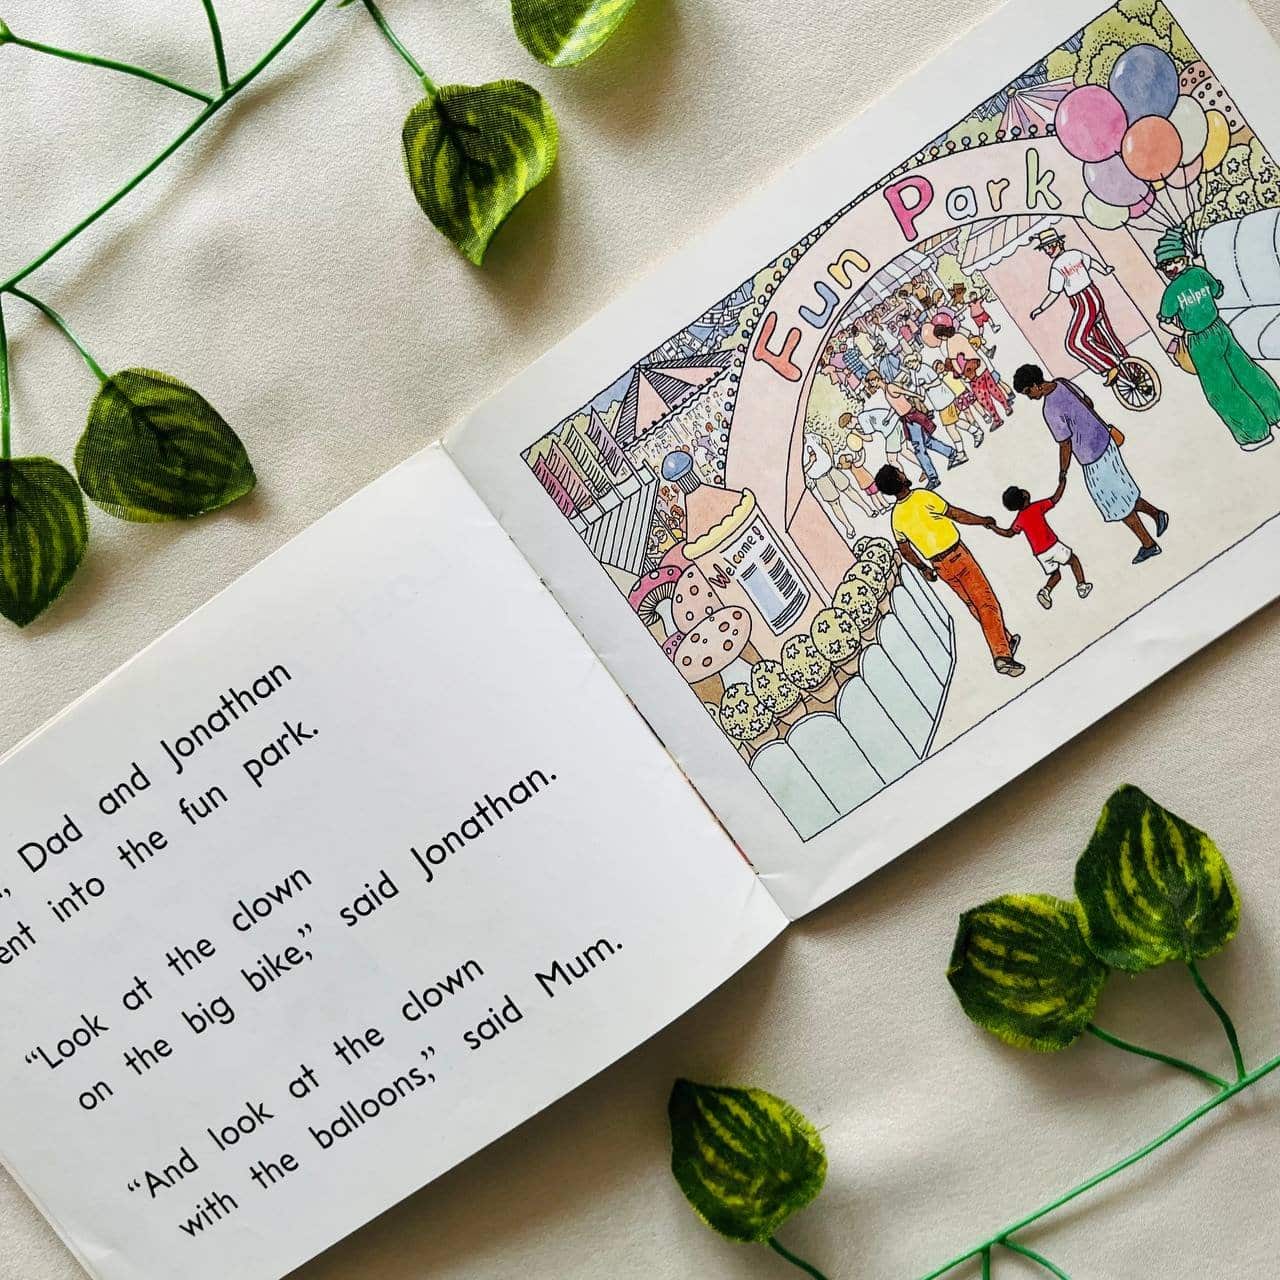 Dad and Jonathan
into the fun park.
“Look at the clown
on the big bike,” said Jonathan.
“And look at the clown
with the balloons,” said Mum.
Fun Park
Helper
Helper
Welcome